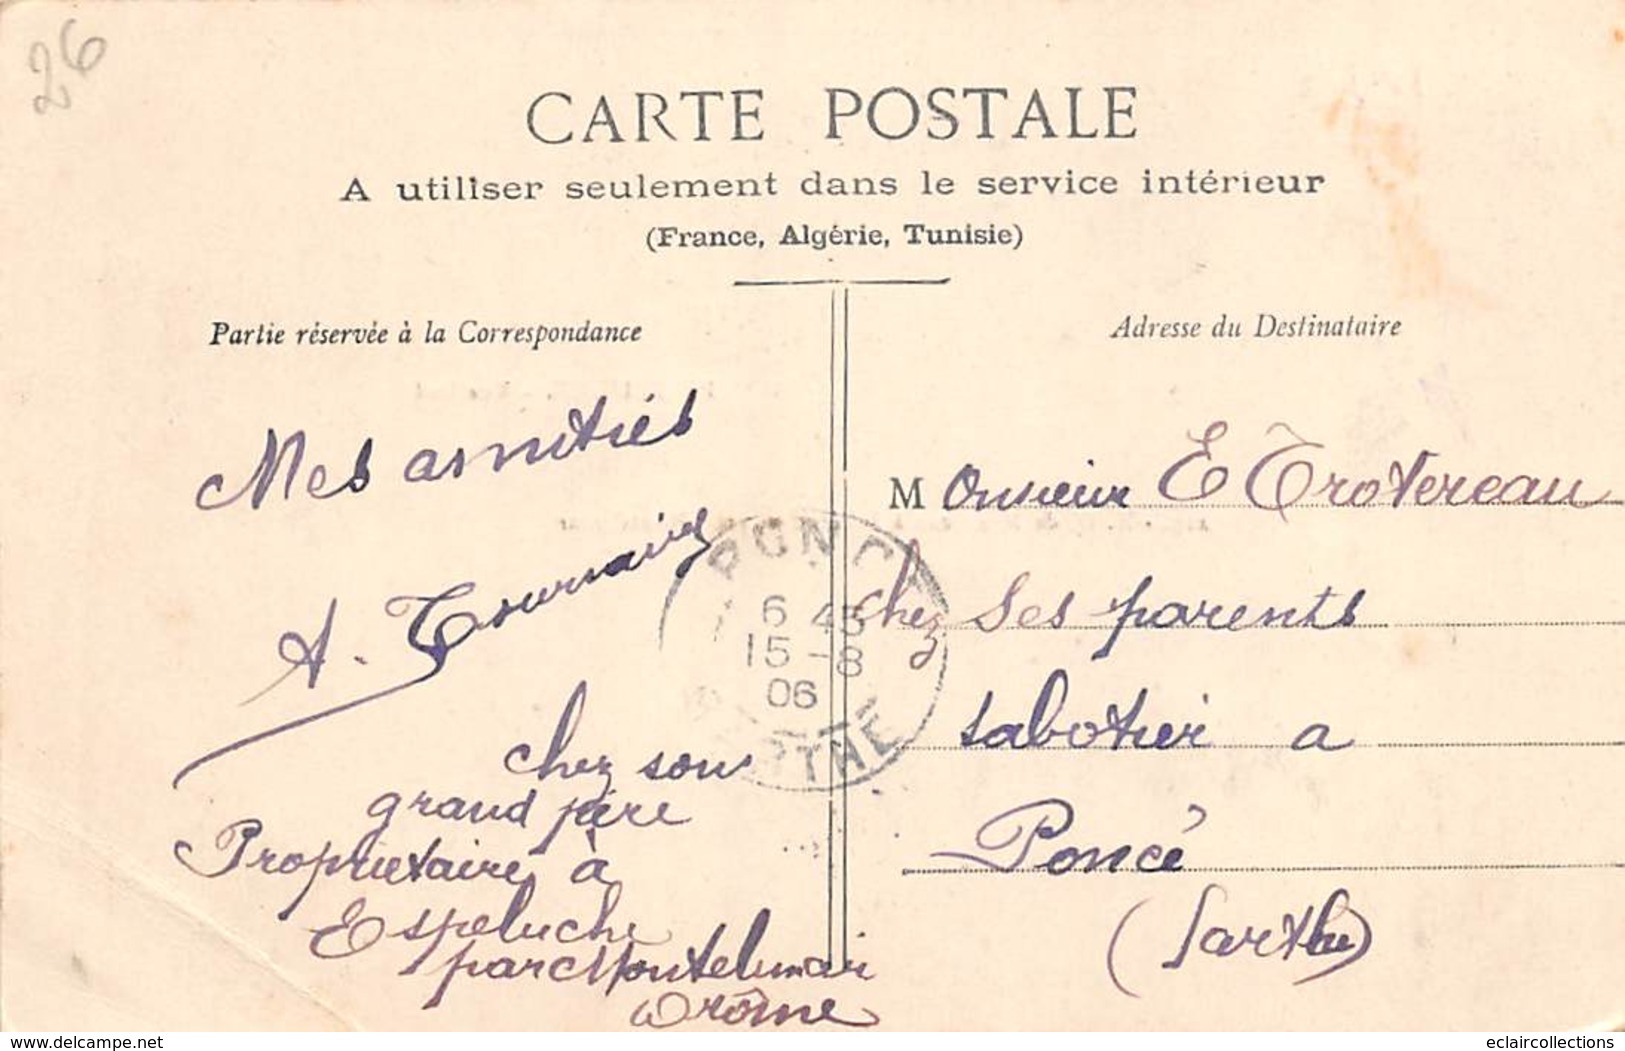 26
CARTE POSTALE
A utiliser seulement dans le service intérieur
(France, Algérie, Tunisie)
Partie réservée à la Correspondance
Mes amitiés
A.
chez son
grand père
Propriétaire à
Espeluche
par Montelimar
Drôme
PONCÉ
6 45
15-8
06
SARTHE
Adresse du Destinataire
Monsieur E Trotereau
chez ses parents
sabotier a
Poncé
(Sarthe)
www.delcampe.net
eclaircollections